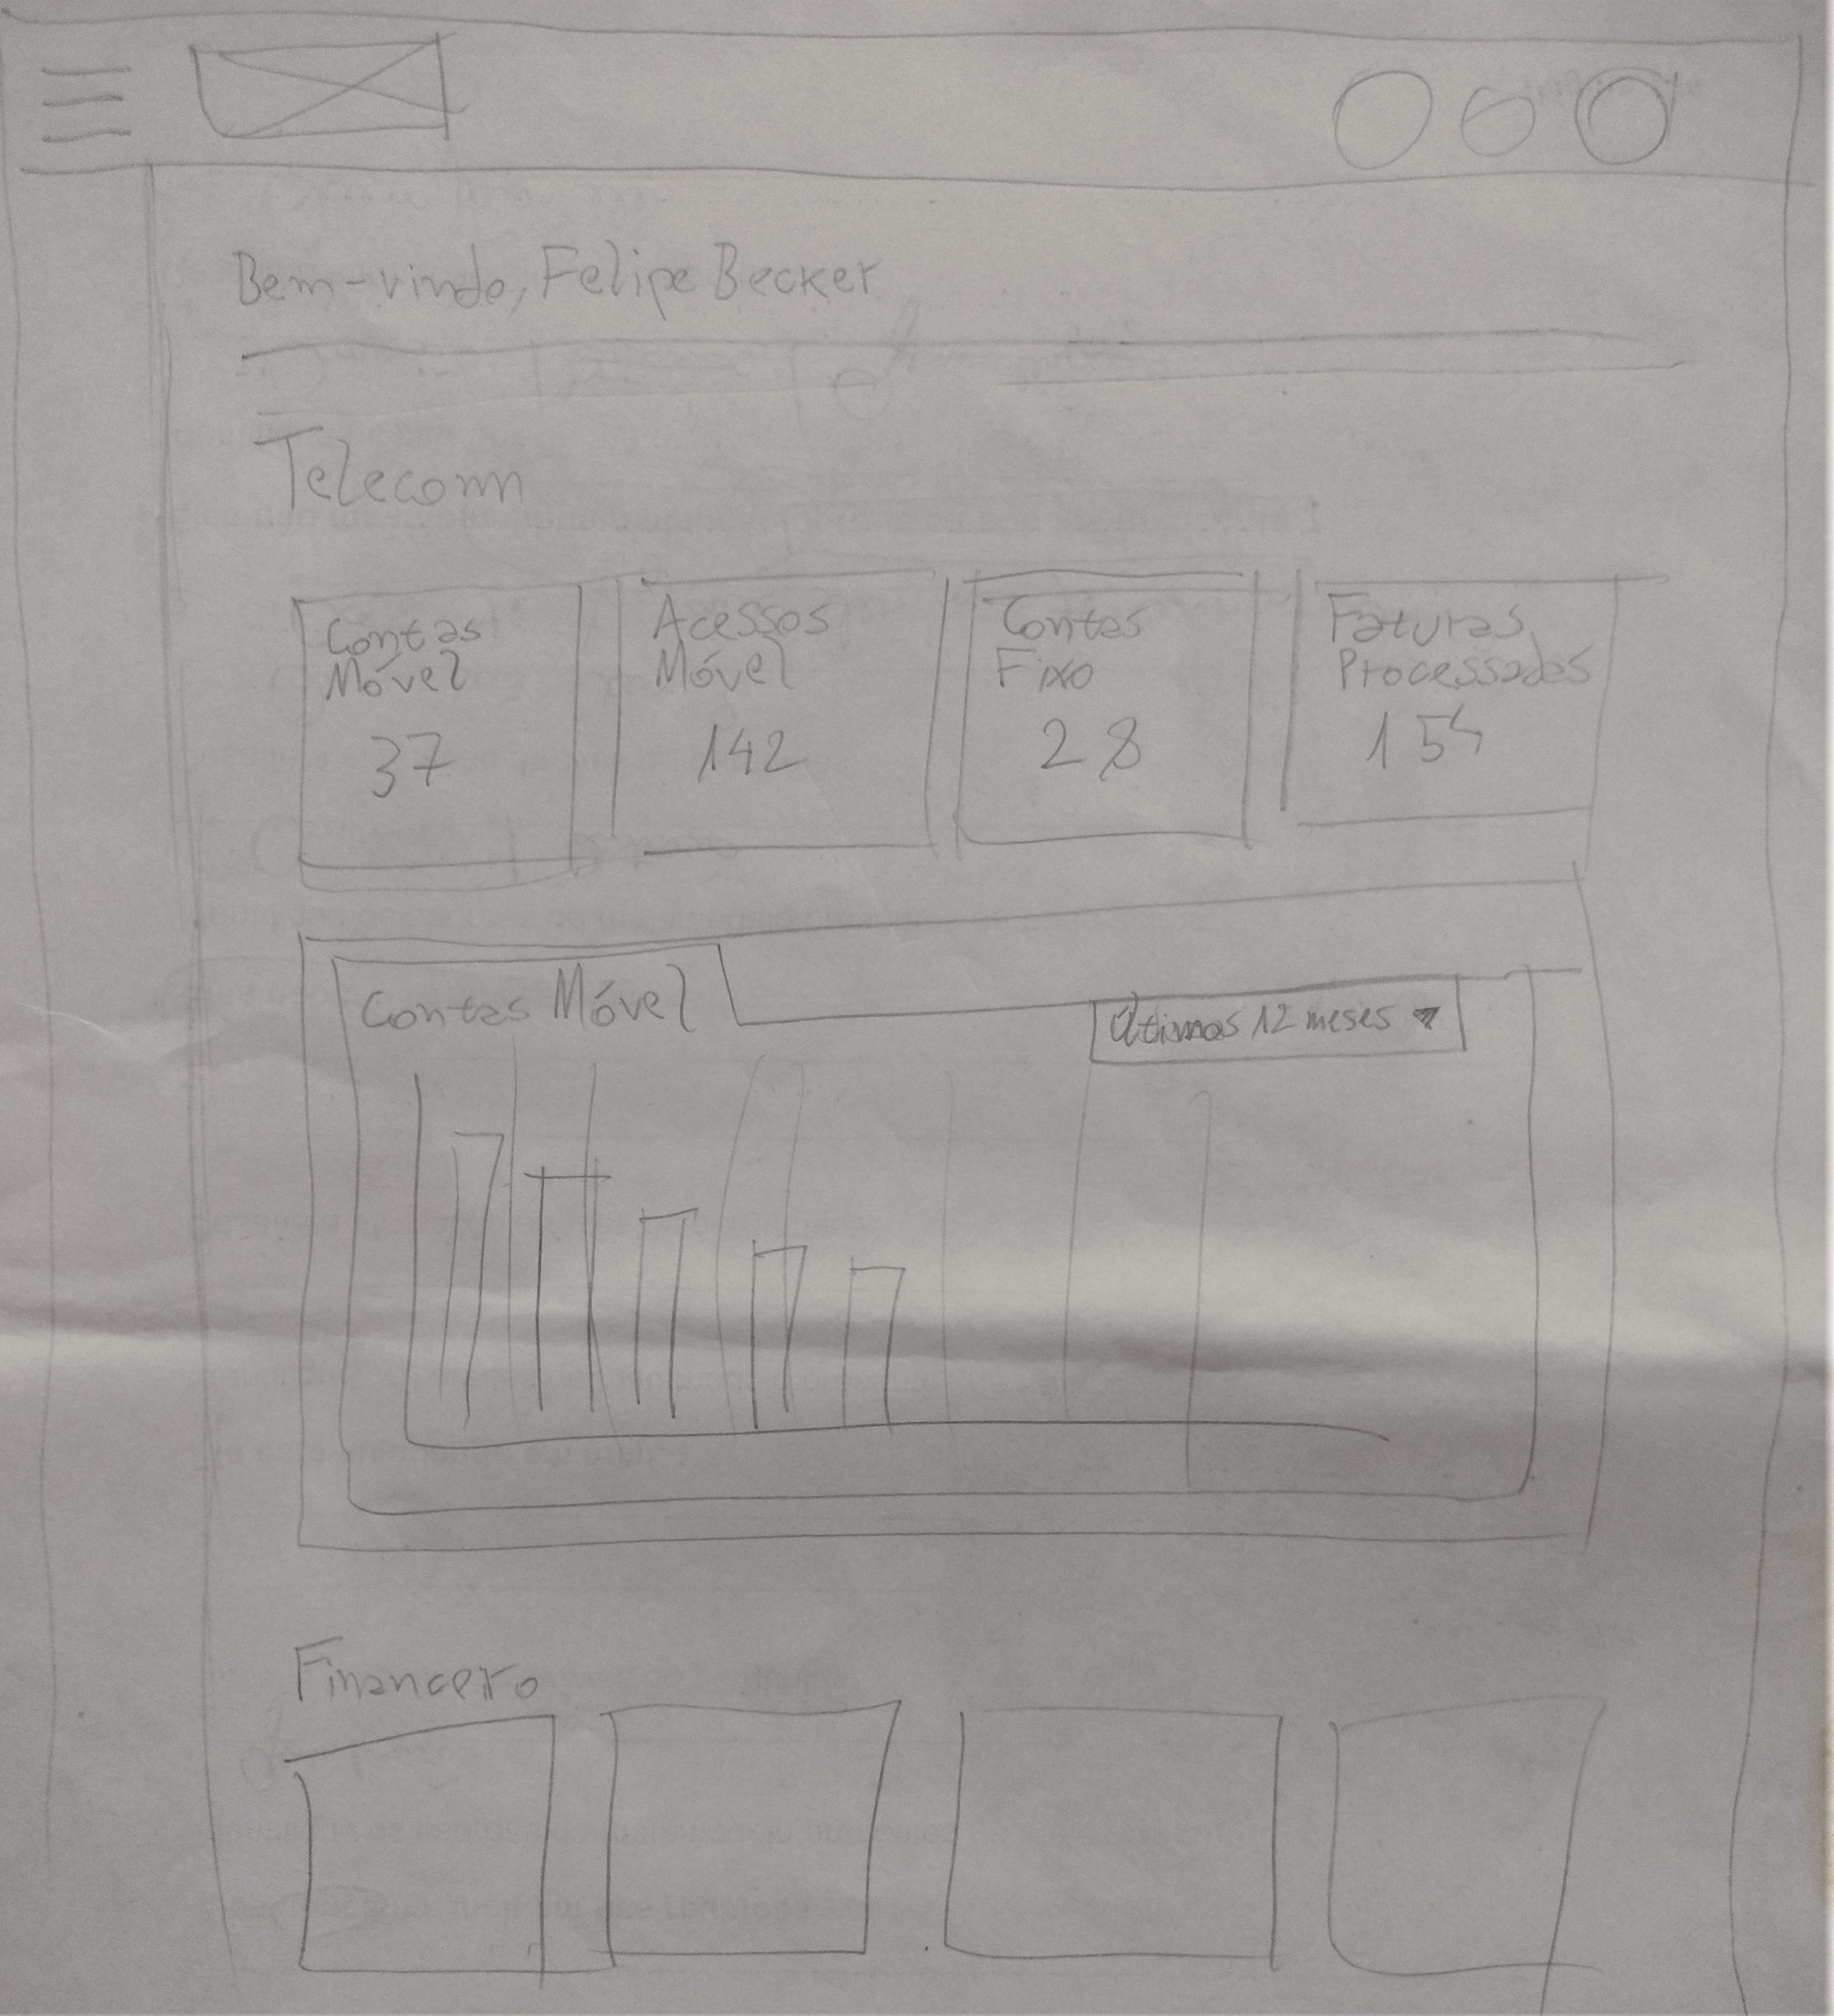 Bem-vindo, Felipe Becker
Telecom
Contas
Móvel
37
Acessos
Móvel
142
Contas
Fixo
28
Faturas
Processadas
154
Contas Móvel
Últimos 12 meses
Financeiro